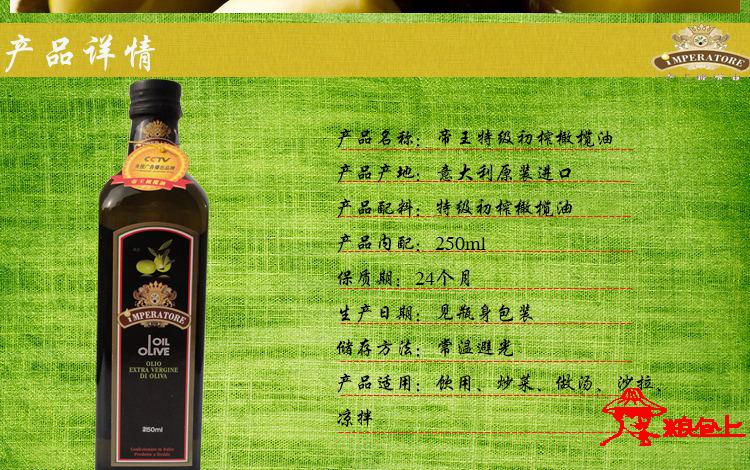 产品详情
IMPERATORE
产品名称：帝王特级初榨橄榄油
产品产地：意大利原装进口
产品配料：特级初榨橄榄油
产品内配：250ml
保质期：24个月
生产日期：见瓶身包装
储存方法：常温避光
产品适用：饮用、炒菜、做汤、沙拉、
凉拌
CCTV
帝王橄榄油
IMPERATORE
OIL
OLIVE
OLIO
EXTRA VERGINE
DI OLIVA
250ml
粮包上